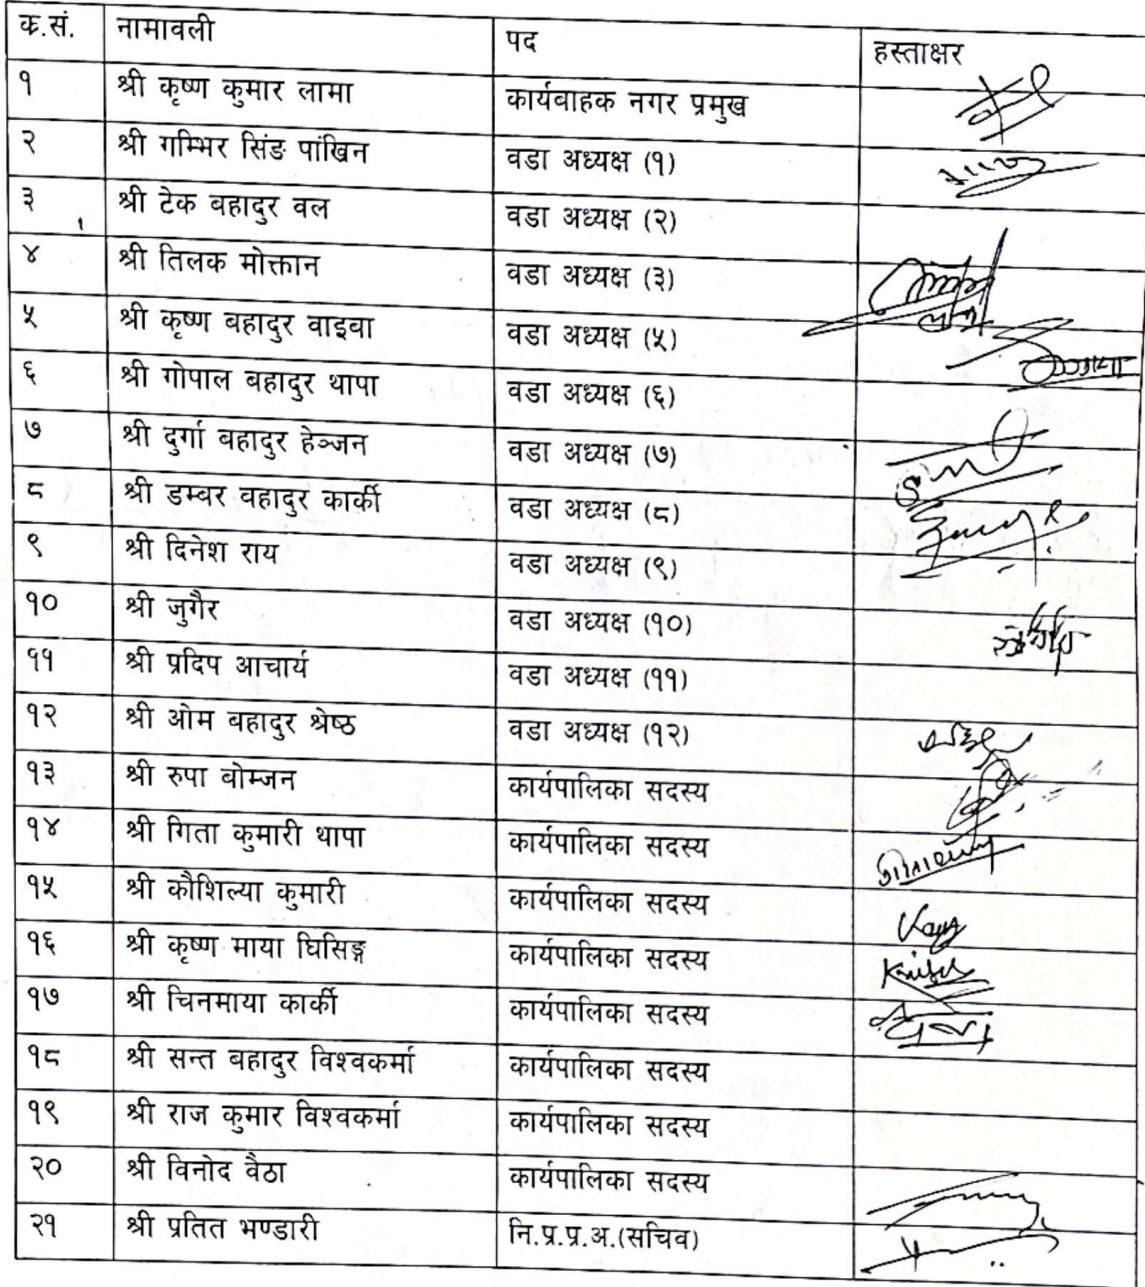 क.सं. नामावली पद हस्ताक्षर
१ श्री कृष्ण कुमार लामा कार्यबाहक नगर प्रमुख
२ श्री गम्भिर सिंङ पांखिन वडा अध्यक्ष (१)
३ श्री टेक बहादुर वल वडा अध्यक्ष (२)
४ श्री तिलक मोक्तान वडा अध्यक्ष (३)
५ श्री कृष्ण बहादुर वाइबा वडा अध्यक्ष (५)
६ श्री गोपाल बहादुर थापा वडा अध्यक्ष (६)
७ श्री दुर्गा बहादुर हेञ्जन वडा अध्यक्ष (७)
८ श्री डम्बर वहादुर कार्की वडा अध्यक्ष (८)
९ श्री दिनेश राय वडा अध्यक्ष (९)
१० श्री जुगैर वडा अध्यक्ष (१०)
११ श्री प्रदिप आचार्य वडा अध्यक्ष (११)
१२ श्री ओम बहादुर श्रेष्ठ वडा अध्यक्ष (१२)
१३ श्री रुपा बोम्जन कार्यपालिका सदस्य
१४ श्री गिता कुमारी थापा कार्यपालिका सदस्य
१५ श्री कौशिल्या कुमारी कार्यपालिका सदस्य
१६ श्री कृष्ण माया घिसिङ्ग कार्यपालिका सदस्य
१७ श्री चिनमाया कार्की कार्यपालिका सदस्य
१८ श्री सन्त बहादुर विश्वकर्मा कार्यपालिका सदस्य
१९ श्री राज कुमार विश्वकर्मा कार्यपालिका सदस्य
२० श्री विनोद वैठा कार्यपालिका सदस्य
२१ श्री प्रतित भण्डारी नि.प्र.प्र.अ.(सचिव)